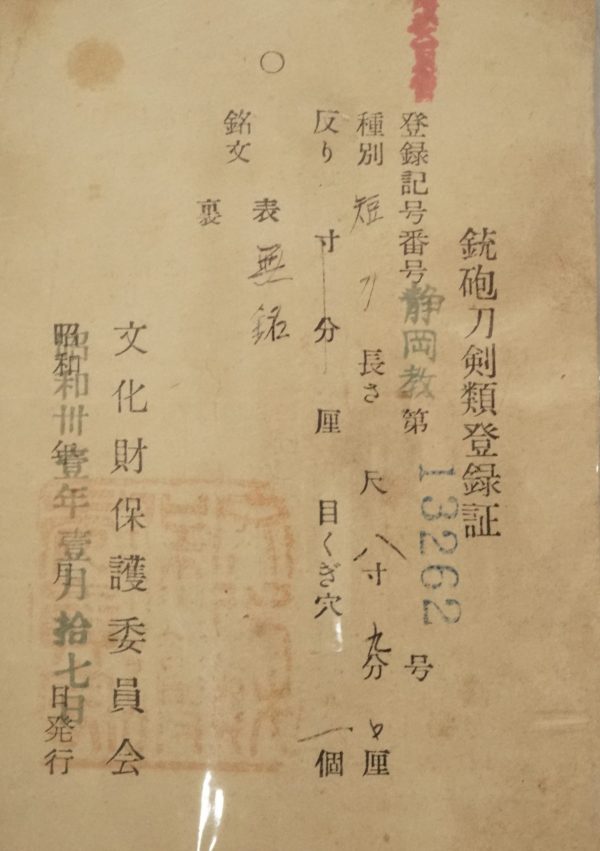 銃砲刀剣類登録証
登録記号番号 静岡教 第 13262 号
種別 短刀 長さ 尺 八寸 九分 厘
反り 寸 分 厘 目くぎ穴 一個
銘文 表 無銘
裏
文化財保護委員会
昭和卅壹年壹月拾七日
昭和 年 月 日発行